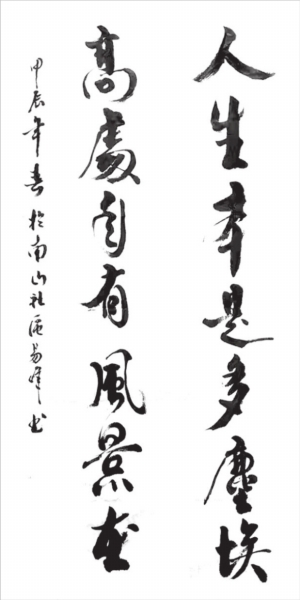 人生本是多塵埃
高處自有風景在
甲辰年春於南山社區易峰书